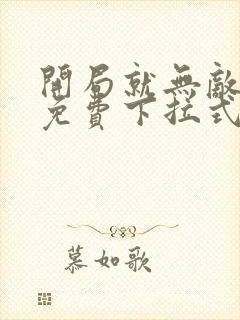 開局就無敵
免費下拉式
慕如歌